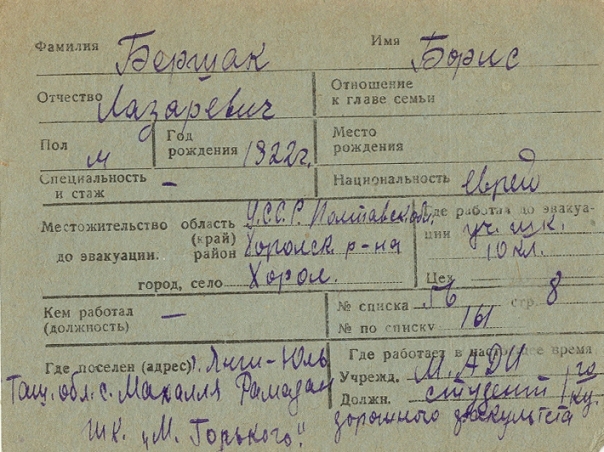 Фамилия Бершак Имя Борис
Отчество Лазаревич Отношение к главе семьи
Пол м Год рождения 1922г. Место рождения
Специальность и стаж — Национальность еврей
Местожительство область У.С.С.Р. Полтавск. обл. Где работал до эвакуа-
(край) ции уч. шк.
до эвакуации. район Хорольск. р-на 10 кл.
город, село Хорол. Цех
Кем работал (должность) — № списка 56 стр. 8
№ по списку 161
Где поселен (адрес) г. Янги-Юль Где работает в настоящее время
Таш. обл. с. Махалля Рамадан Учрежд. М.АДИ
Должн. студент I го ку.
шк. „М. Горького". дорожного факультета